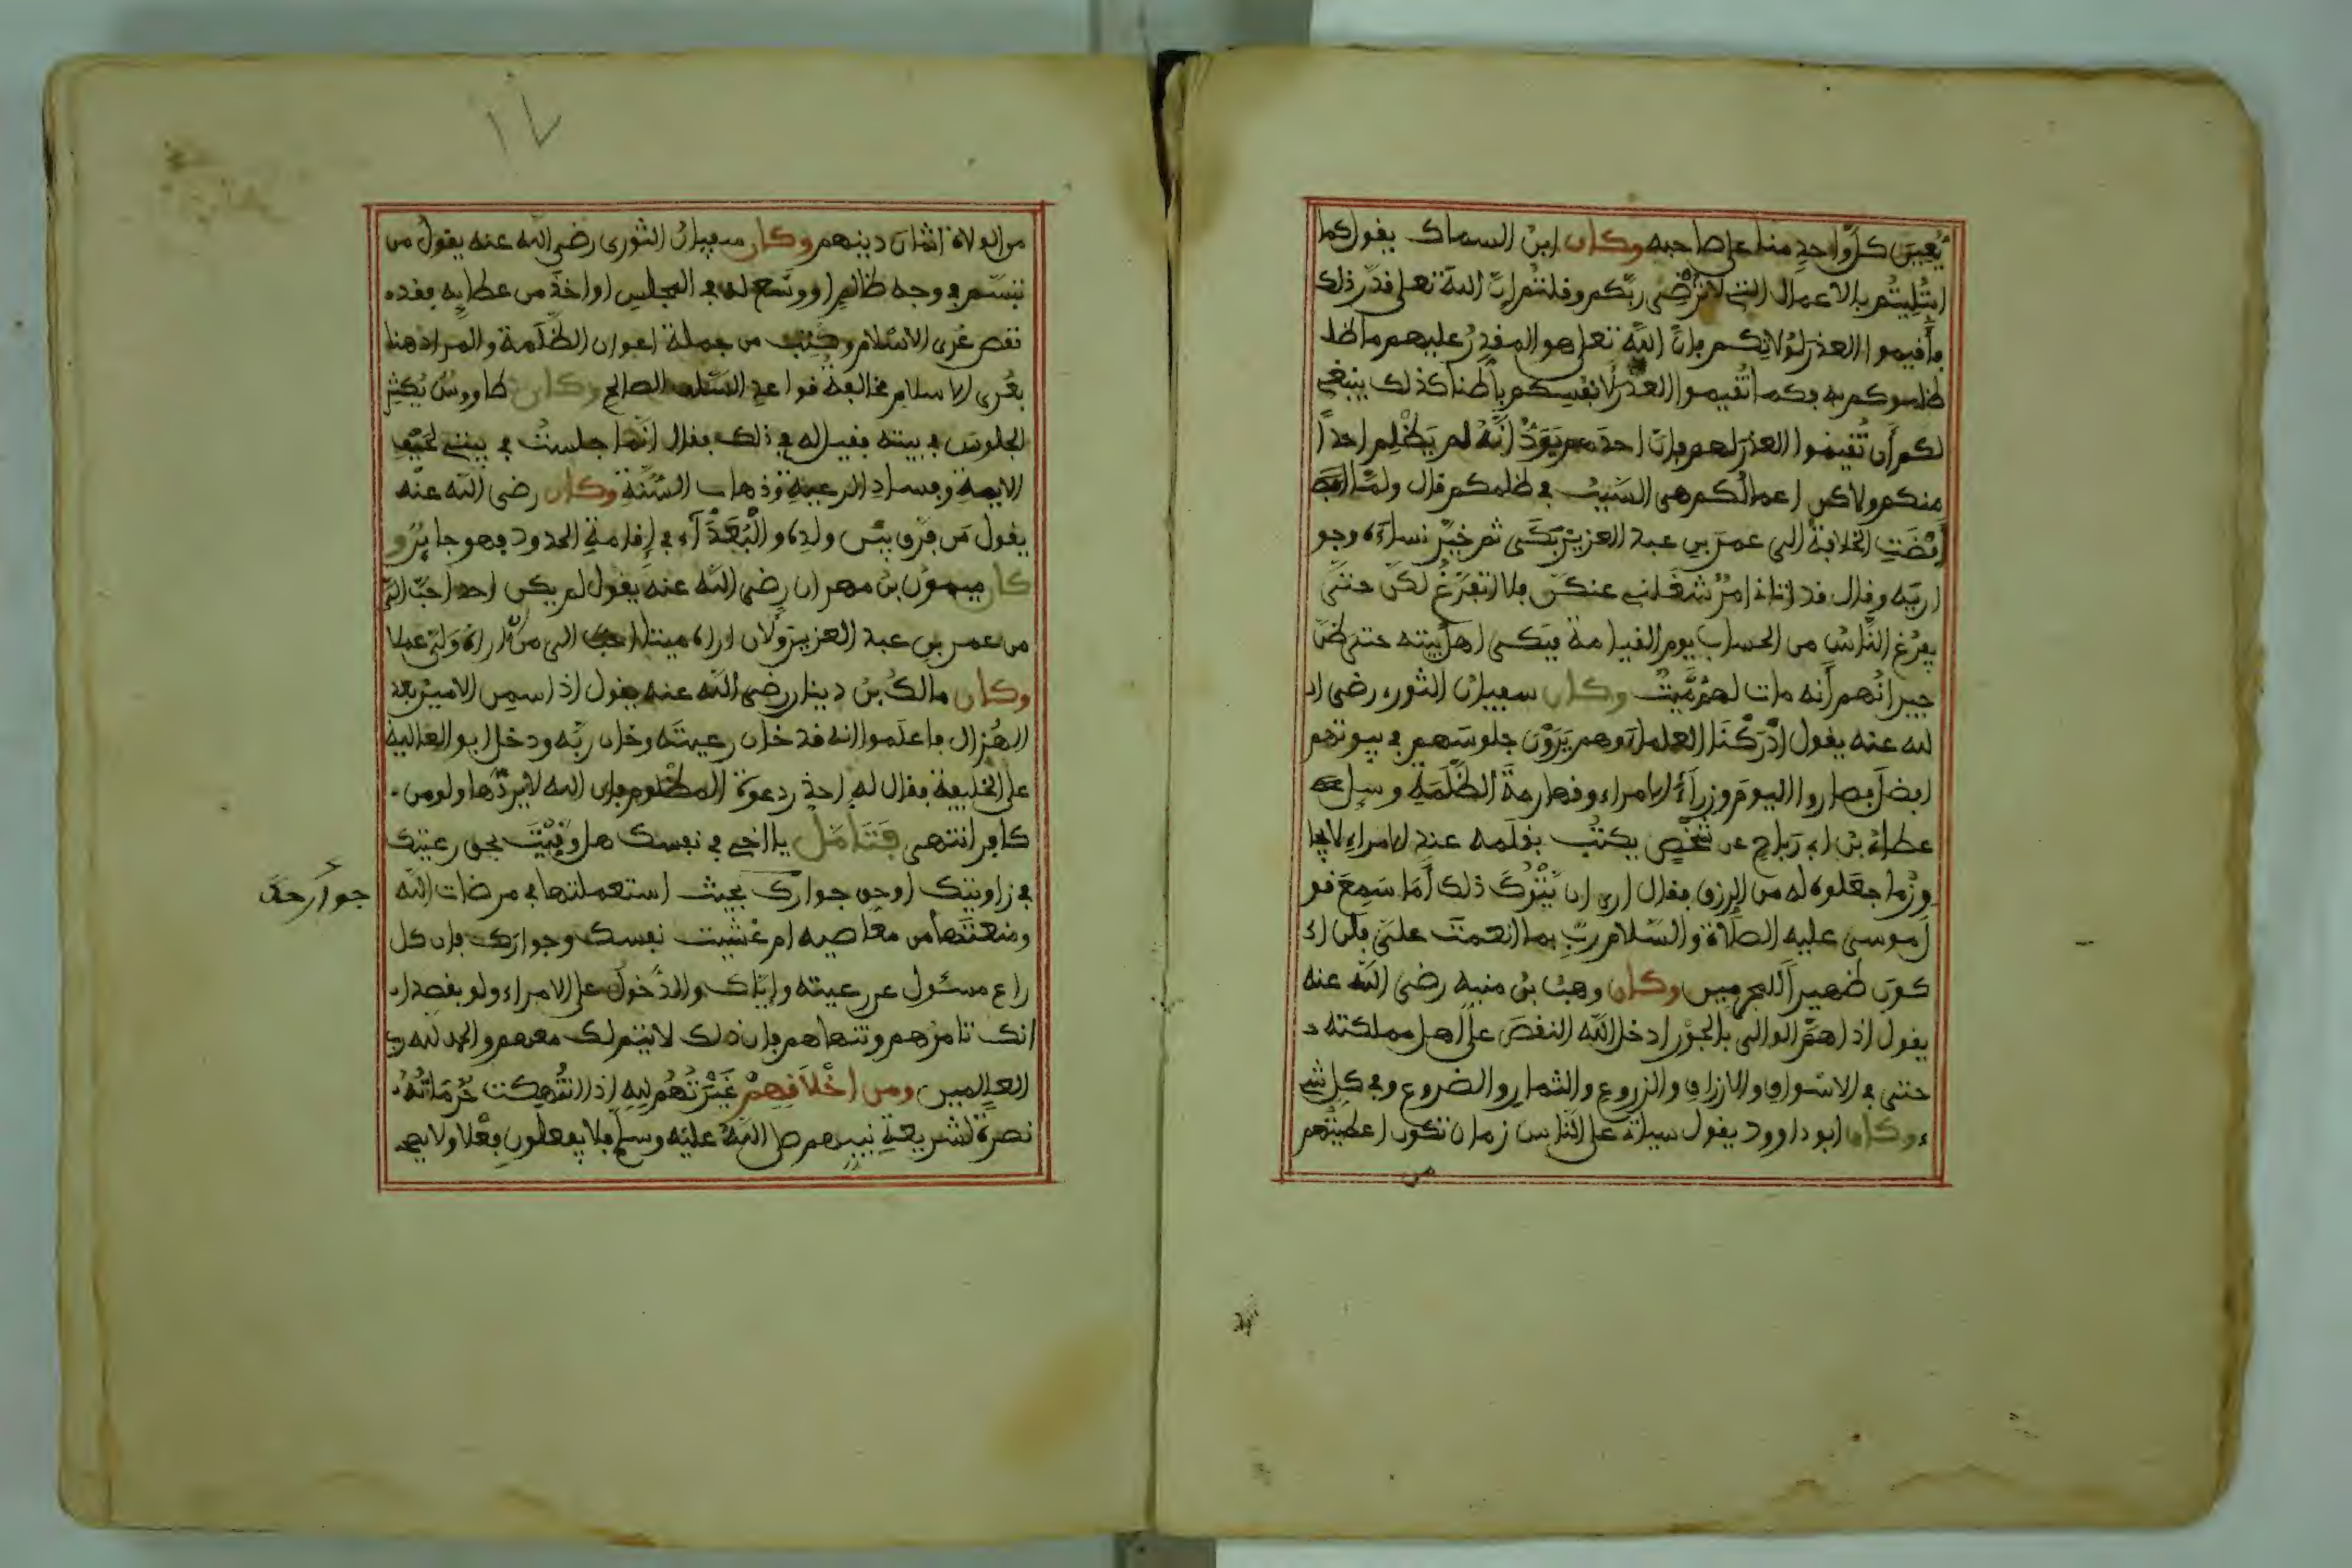 يُعِين كلّ واحد منا على صاحبه وكان ابن السماك يقول كما
ابتُليتُم بالاعمال التي لا ترضى ربّكم وقلتم إنّ اللّه تعلى قدّر ذلك
فأقيموا العذر لوُلاتِكم فإنّ اللّه تعلى هو المقدِرُ عليهم ما ظلـ
ظلموكم به فكما تُقيموا العذر لأنفسكم باطنا كذلك ينبغي
لكم أن تُقيموا العذر لهم فإن احدهم يَوَدُّ انَّهُ لم يَظْلِم احدًا
منكم ولاكن اعمالُكم هي السَّبب في ظلمكم قال ولمّا
أفضَت الخلافة الى عمرَ بن عبد العزيز بَكَى ثم خيَّر نساءَه وجو
اريَه وقال قد اتانى امرٌ شغلنى عنكنّ فلا اتفرّغُ لكنّ حتّى
يفرُغ النّاسُ من الحساب يوم القيامة فبَكى اهل بيته حتى ظنّ
جيرانُهم أنه مات لهم مَّيِّتٌ وكان سفيان الثورى رضى ا
لله عنه يقول ادْرَكْنَا العلماءَ وهم يَرَوْن جلوسَهم في بيوتهم
افضل فصاروا اليوم وزرآءُ الامراء وقهارمةَ الظَّلَمَةِ وسيل
عطاءُ بن ابى رَباح عن شخصٍ يكتُب بقلَمه عند الامراء لا يجا
وزُ ما جعَلوه له من الرزق فقال ارى ان يَّتْرُكَ ذلك أمَا سَمِعَ قو
لَ موسى عليه الصلاة والسّلام ربِّ بما انعمتَ عليّ فلن ا
كونَ ظهيرًا للمجرمين وكان وهبُ بنُ منبه رضى اللّه عنه
يقول اذا همَّ الوالى بالجَوْر ادخل اللّه النقصَ على أهل مملكته
حتى في الاسْواق والارزاق والزروع والثمار والضروع وفي كل شـ
ء وكان ابو داوود يقول سياتى على النّاس زمان تكون اعطيتُهم
من
١٧
من الولاة اثمانَ دينهم وكان سفيانُ الثورى رضى اللّه عنه يقولُ من
تبسّم في وجه ظالم او وسّع له في المجلس او اخذ من عطايه فقد
نقص عُرى الاسْلام وكُتِب من جملة اعوان الظَّلَمة والمراد هنا
بعُرى الاسلام مخالفة قواعدِ السَّلف الصالح وكان طاووسُ يُكثِر
الجلوسَ في بيته فقيل له في ذلك فقال انّما جلستُ في بيتي لحَيْفِ
الايمة وفساد الرعيّة وذهاب السُّنَّة وكان رضى اللّه عنه
يقول مَن فرّق بيْن ولده والبُعَدَآءِ في إقامةِ الحدود فهو جايرٌ و
كان ميمونُ بن مهران رضى اللّه عنه يقول لم يكن احد احبّ اليّ
من عمر بن عبد العزيز ولأن اراه ميتا احبّ الى من أن اراه وَلى عملا
وكان مالكُ بنُ دينار رضى اللّه عنه يقول اذا سمِن الاميرُ بعد
الهُزال فاعلموا انه قد خان رعيتَه وخان ربّه ودخل ابو العالية
على الخليفة فقال له احذر دعوة المظلوم فان اللّه لا يردّها ولو من
كافِر انتهى فَتَأَمَّلْ يا اخي في نفسك هل وفّيْتَ بحق رعيتك
في زاويتك او حق جوارك بحيث استعملتها في مرضات اللّه
جوارحك
ومنعتَها من معاصيه ام غششت نفسك وجوارك فإن كل
راع مسئول عن رعيته وايّاك والدُّخولَ على الامراء ولو بقصد ا
انك تامرُهم وتنهاهم فإن ذلك لا يتم لك معهم والحمد لله ر
العالمين ومن اخْلاقِهِمْ غَيْرَتُهُم لِلهِ اذا انتُهِكت حُرُمَاتُهُ
نصرةً لشريعةِ نبيهم صلى اللّهُ عليْه وسلّم فلا يفعلون فِعْلا ولا يصـ